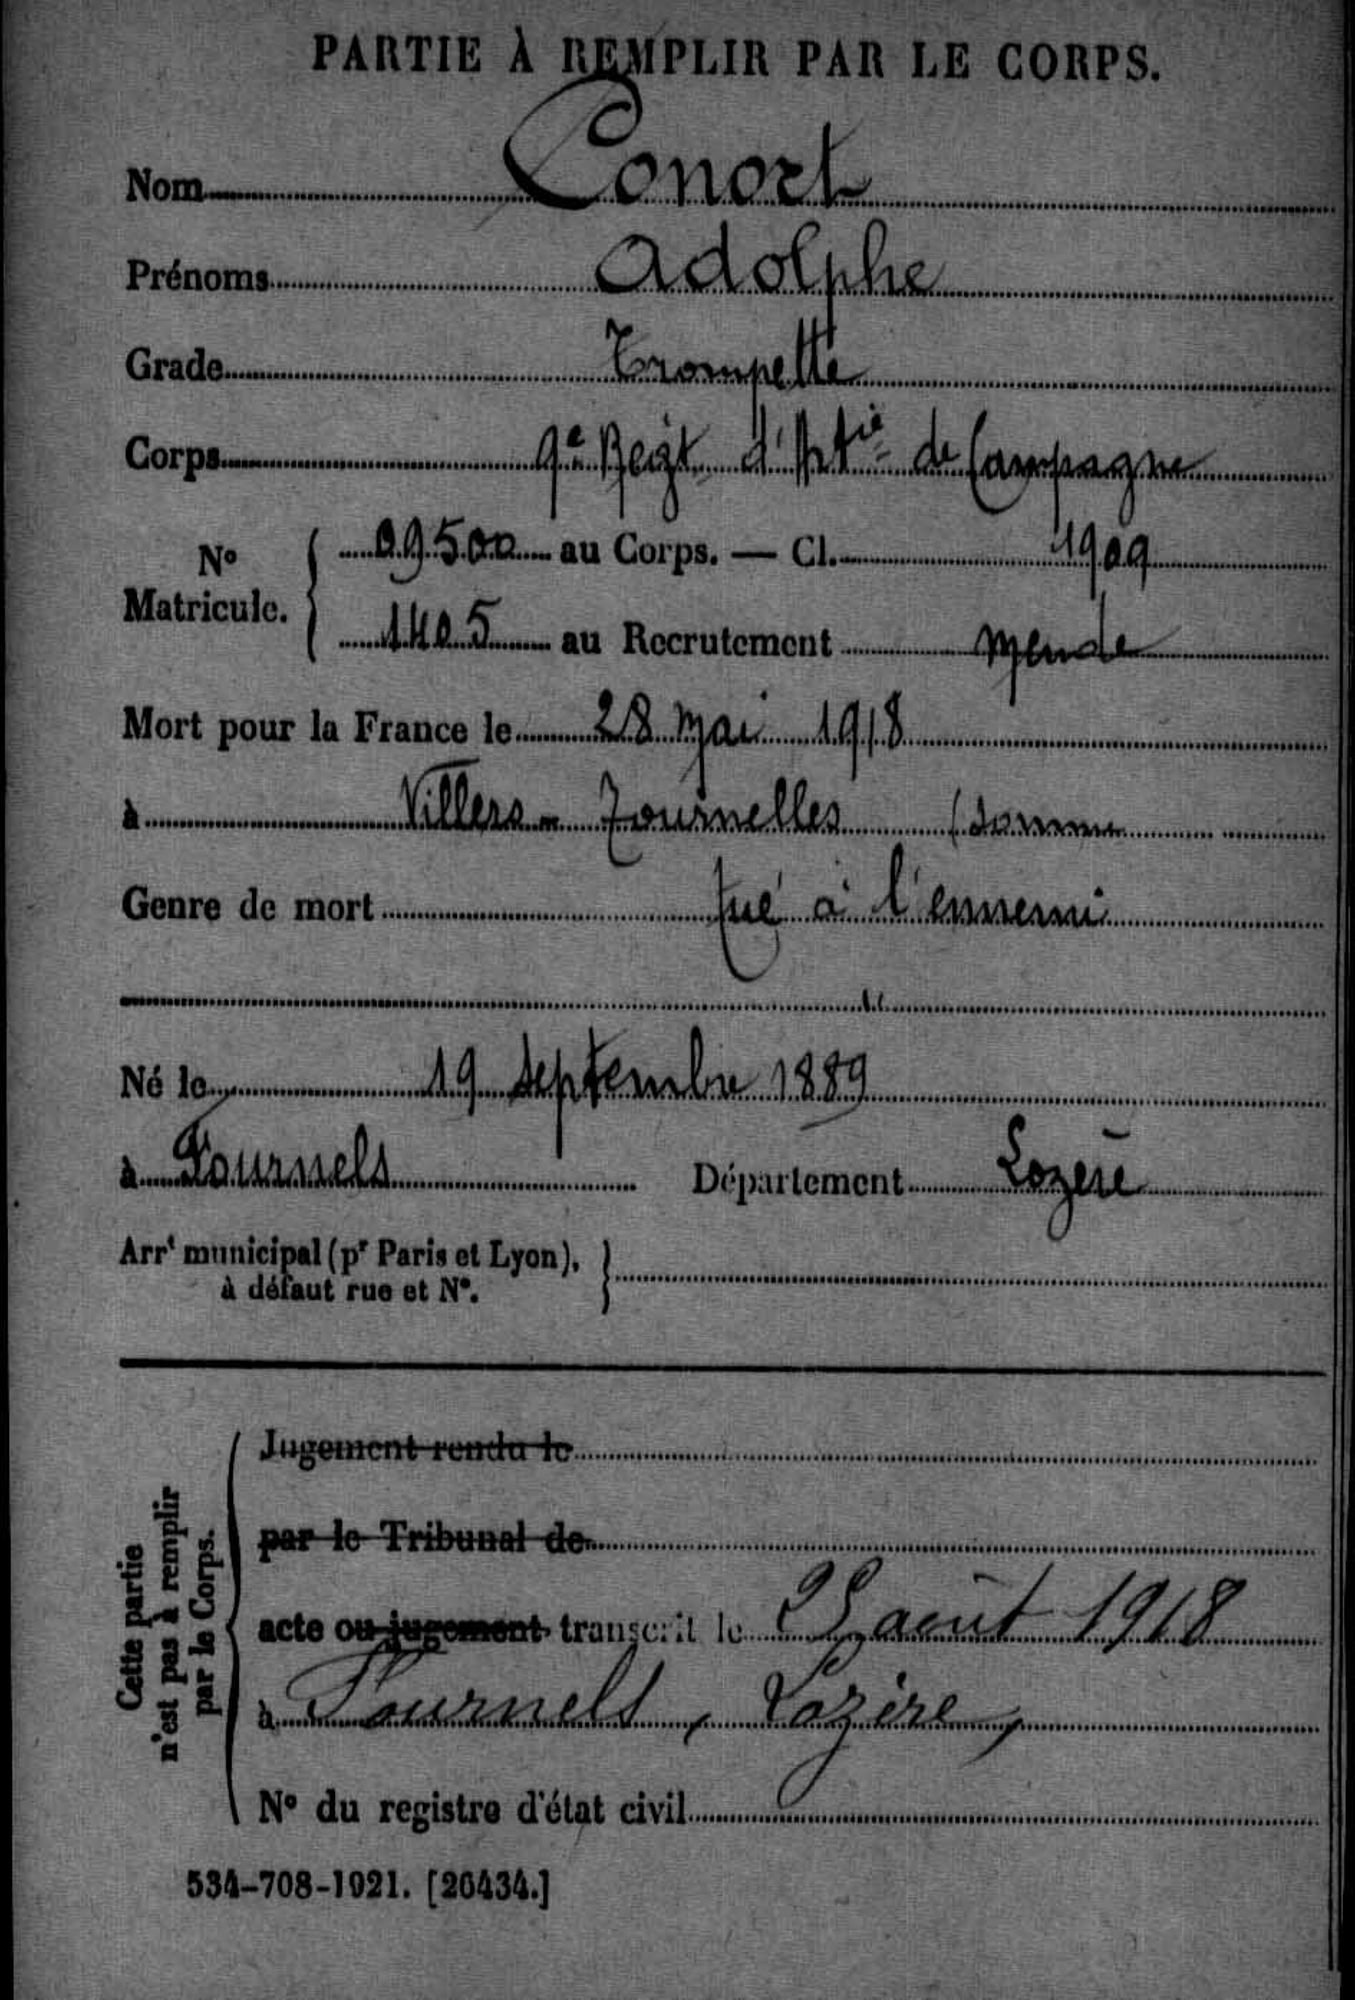 PARTIE À REMPLIR PAR LE CORPS.
Nom Conort
Prénoms Adolphe
Grade Trompette
Corps 9e Regt d'Artie de Campagne
No Matricule. 09500 au Corps. — Cl. 1909
1405 au Recrutement Mende
Mort pour la France le 28 Mai 1918
à Villers-Tournelles (Somme
Genre de mort tué à l'ennemi
Né le 19 Septembre 1889
à Fournels Département Lozère
Arrt municipal (pr Paris et Lyon),
à défaut rue et No.
Cette partie
n'est pas à remplir
par le Corps.
Jugement rendu le
par le Tribunal de
acte ou jugement transcrit le 25 août 1918
à Fournels, Lozère,
No du registre d'état civil
534-708-1921. [26434.]